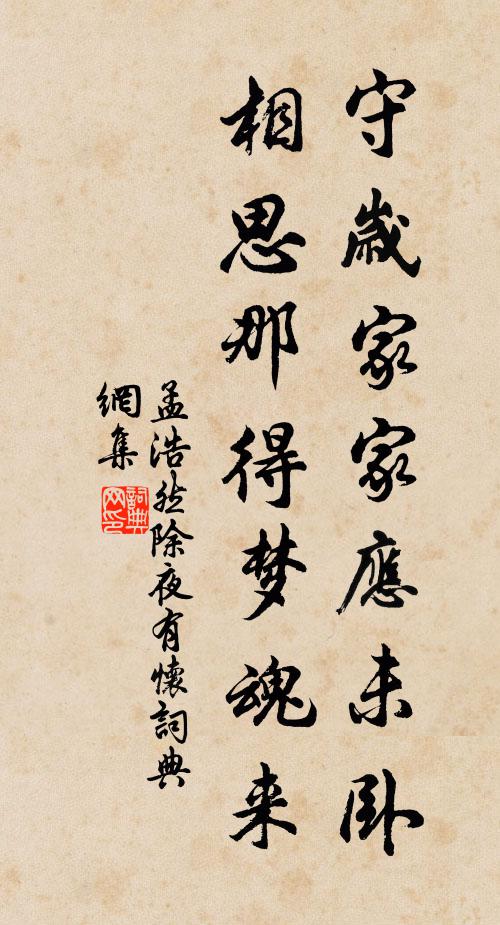 守歲家家應未臥
相思那得梦魂来
孟浩然除夜有懷詞典
網集
詞典
网印